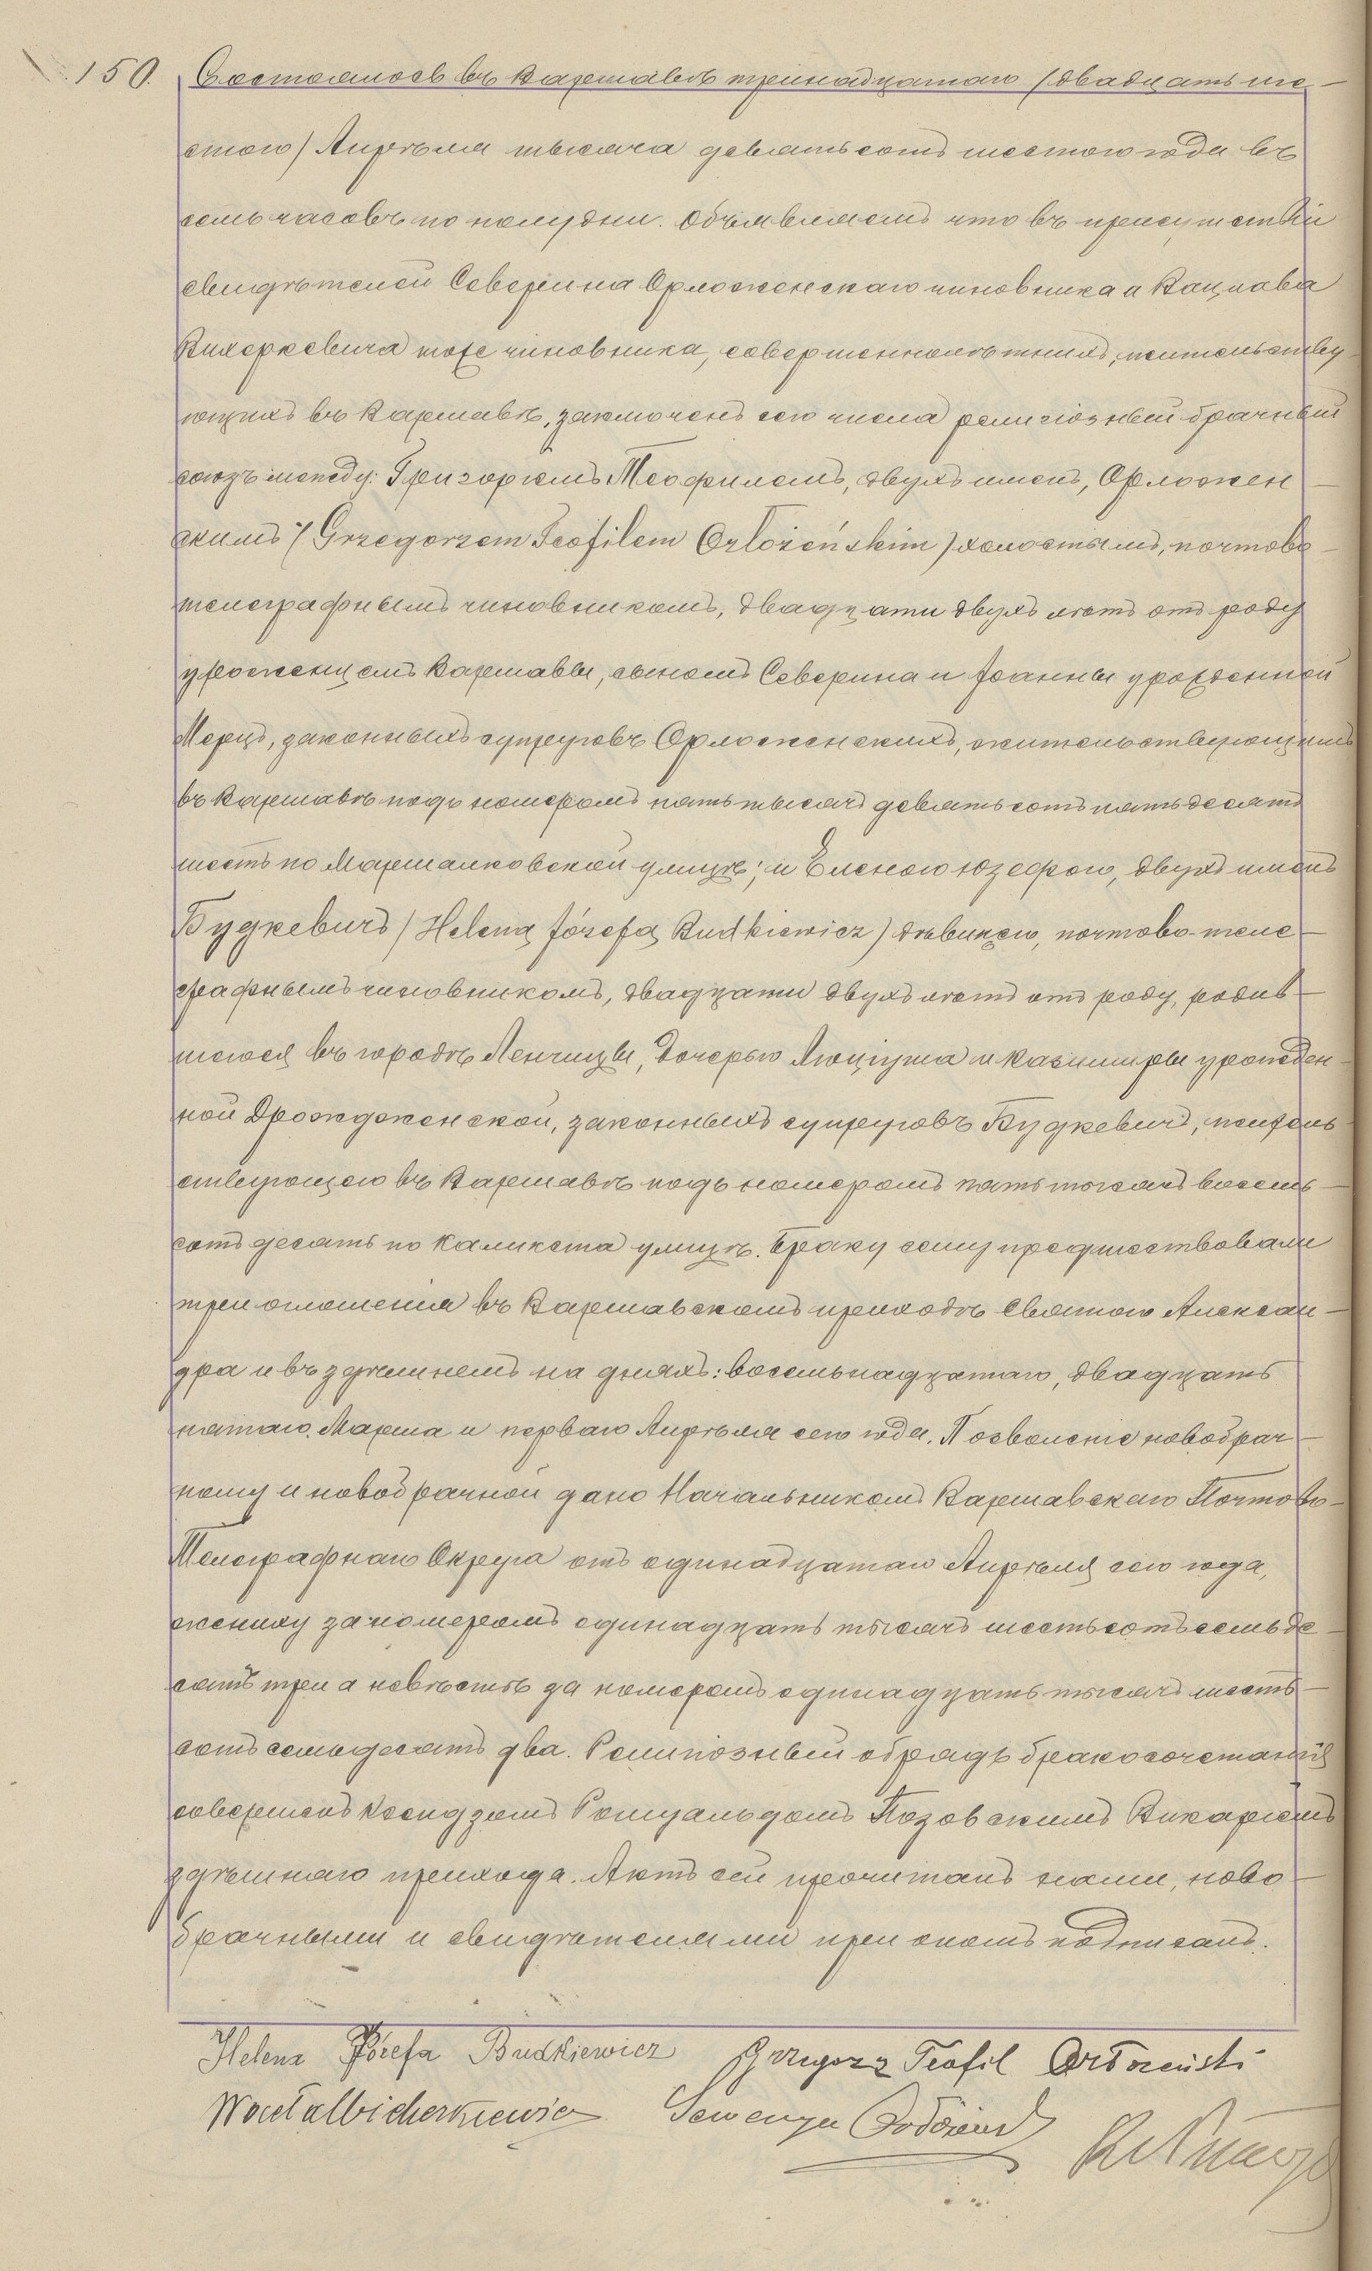 150. Состоялось въ Варшавѣ тринадцатаго /двадцать ше-
стого/ Апрѣля тысяча девятьсотъ шестого года въ
семь часовъ по полудни. Объявляемъ что въ присутствіи
свидѣтелей Северина Орложенскаго чиновника и Вацлава
Вихеркевича тоже чиновника, совершеннолѣтнихъ, жительству-
ющихъ въ Варшавѣ, заключенъ сего числа религіозный брачный
союзъ между: Григоріемъ Теофилемъ, двухъ именъ, Орложен-
скимъ /Grzegorzem Teofilem Orłożeńskim/ холостымъ, почтово-
телеграфнымъ чиновникомъ, двадцати двухъ лѣтъ отъ роду
уроженцемъ Варшавы, сыномъ Северина и Іоанны урожденной
Мерцъ, законныхъ супруговъ Орложенскихъ, жительствующимъ
въ Варшавѣ подъ номеромъ пять тысячъ девятьсотъ пятьдесятъ
шесть по Маршалковской улицѣ; и Еленою Юзефою, двухъ именъ
Будкевичъ /Heleną Józefą Budkiewicz/ дѣвицею, почтово-теле-
графнымъ чиновникомъ, двадцати двухъ лѣтъ отъ роду, родив-
шеюся въ городѣ Ленчицы, дочерью Люціуша и Казимиры урожден-
ной Дрождженской, законныхъ супруговъ Будкевичъ, житель-
ствующею въ Варшавѣ подъ номеромъ пять тысячъ восемь-
сотъ десять по Каликста улицѣ. Браку сему предшествовали
три оглашенія въ Варшавскомъ приходѣ Святого Алексан-
дра и въ здѣшнемъ на дняхъ: восемьнадцатаго, двадцать
пятаго Марта и перваго Апрѣля сего года. Позволеніе новобрач-
ному и новобрачной дано Начальникомъ Варшавскаго Почтово-
Телеграфнаго Округа отъ одинадцатаго Апрѣля сего года,
жениху за номеромъ одинадцать тысячъ шестьсотъ семьде-
сятъ три а невѣстѣ за номеромъ одинадцать тысячъ шесть-
сотъ семьдесятъ два. Религіозный обрядъ бракосочетанія
совершенъ Ксендзомъ Ромуальдомъ Позовскимъ Викаріемъ
здѣшняго прихода. Актъ сей прочитанъ нами, ново-
брачными и свидѣтелями при ономъ подписанъ.
Helena Józefa Budkiewicz Grzegorz Teofil Orłożeński
Wacław Wicherkiewicz Seweryn Orłożeński